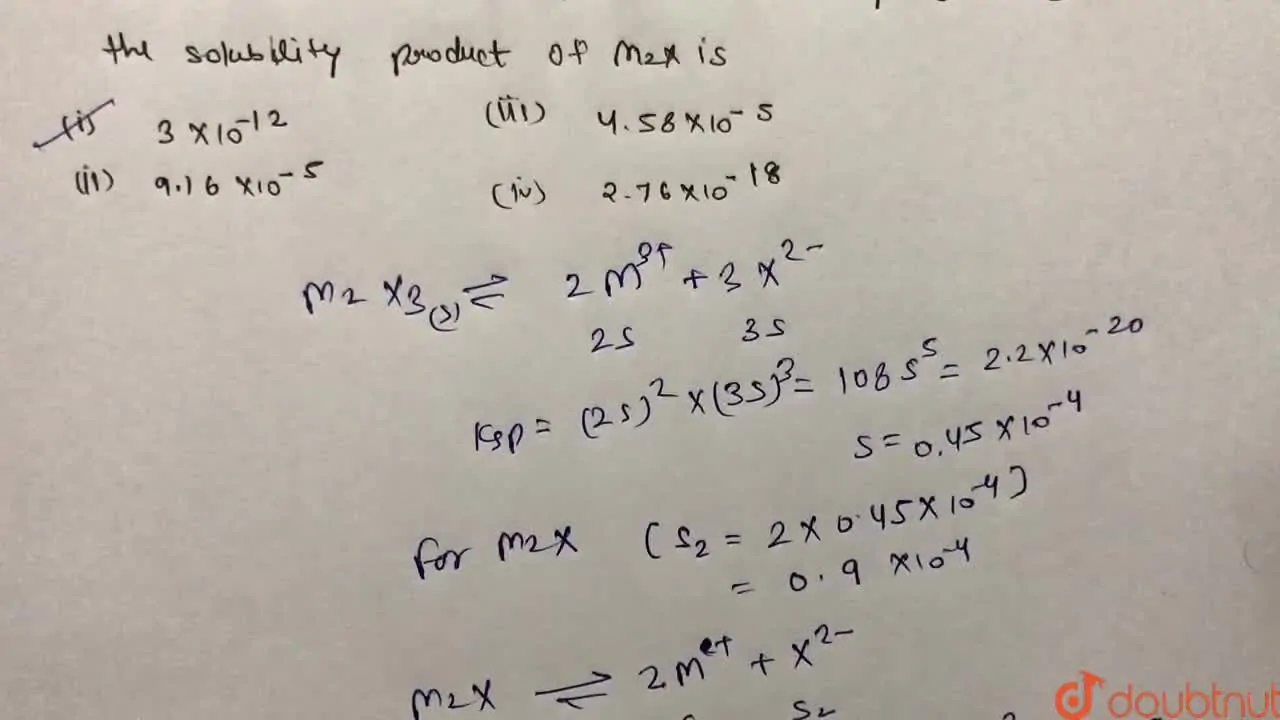 the solubility product of M2X is
(i) 3 × 10⁻¹² (iii) 4.58 × 10⁻⁵
(ii) 9.16 × 10⁻⁵ (iv) 2.76 × 10⁻¹⁸
M2 X3(s) ⇌ 2 M³⁺ + 3 X²⁻
2s 3s
Ksp = (2s)² × (3s)³ = 108 s⁵ = 2.2 × 10⁻²⁰
s = 0.45 × 10⁻⁴
for M2X (S2 = 2 × 0.45 × 10⁻⁴)
= 0.9 × 10⁻⁴
M2X ⇌ 2M + X²⁻
S2
doubtnut